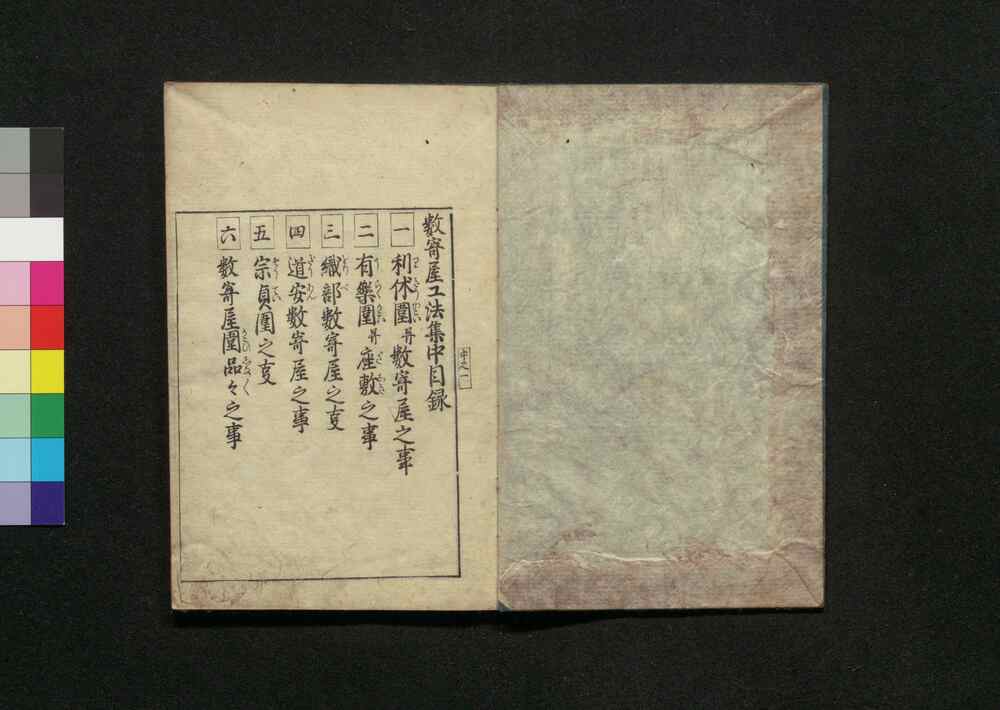 數寄屋工法集中目録
一 利休圍并數寄屋之事
二 有樂圍并座敷之事
三 織部數寄屋之叓
四 道安數寄屋之事
五 宗貞圍之叓
六 數寄屋圍品々之事
中之一